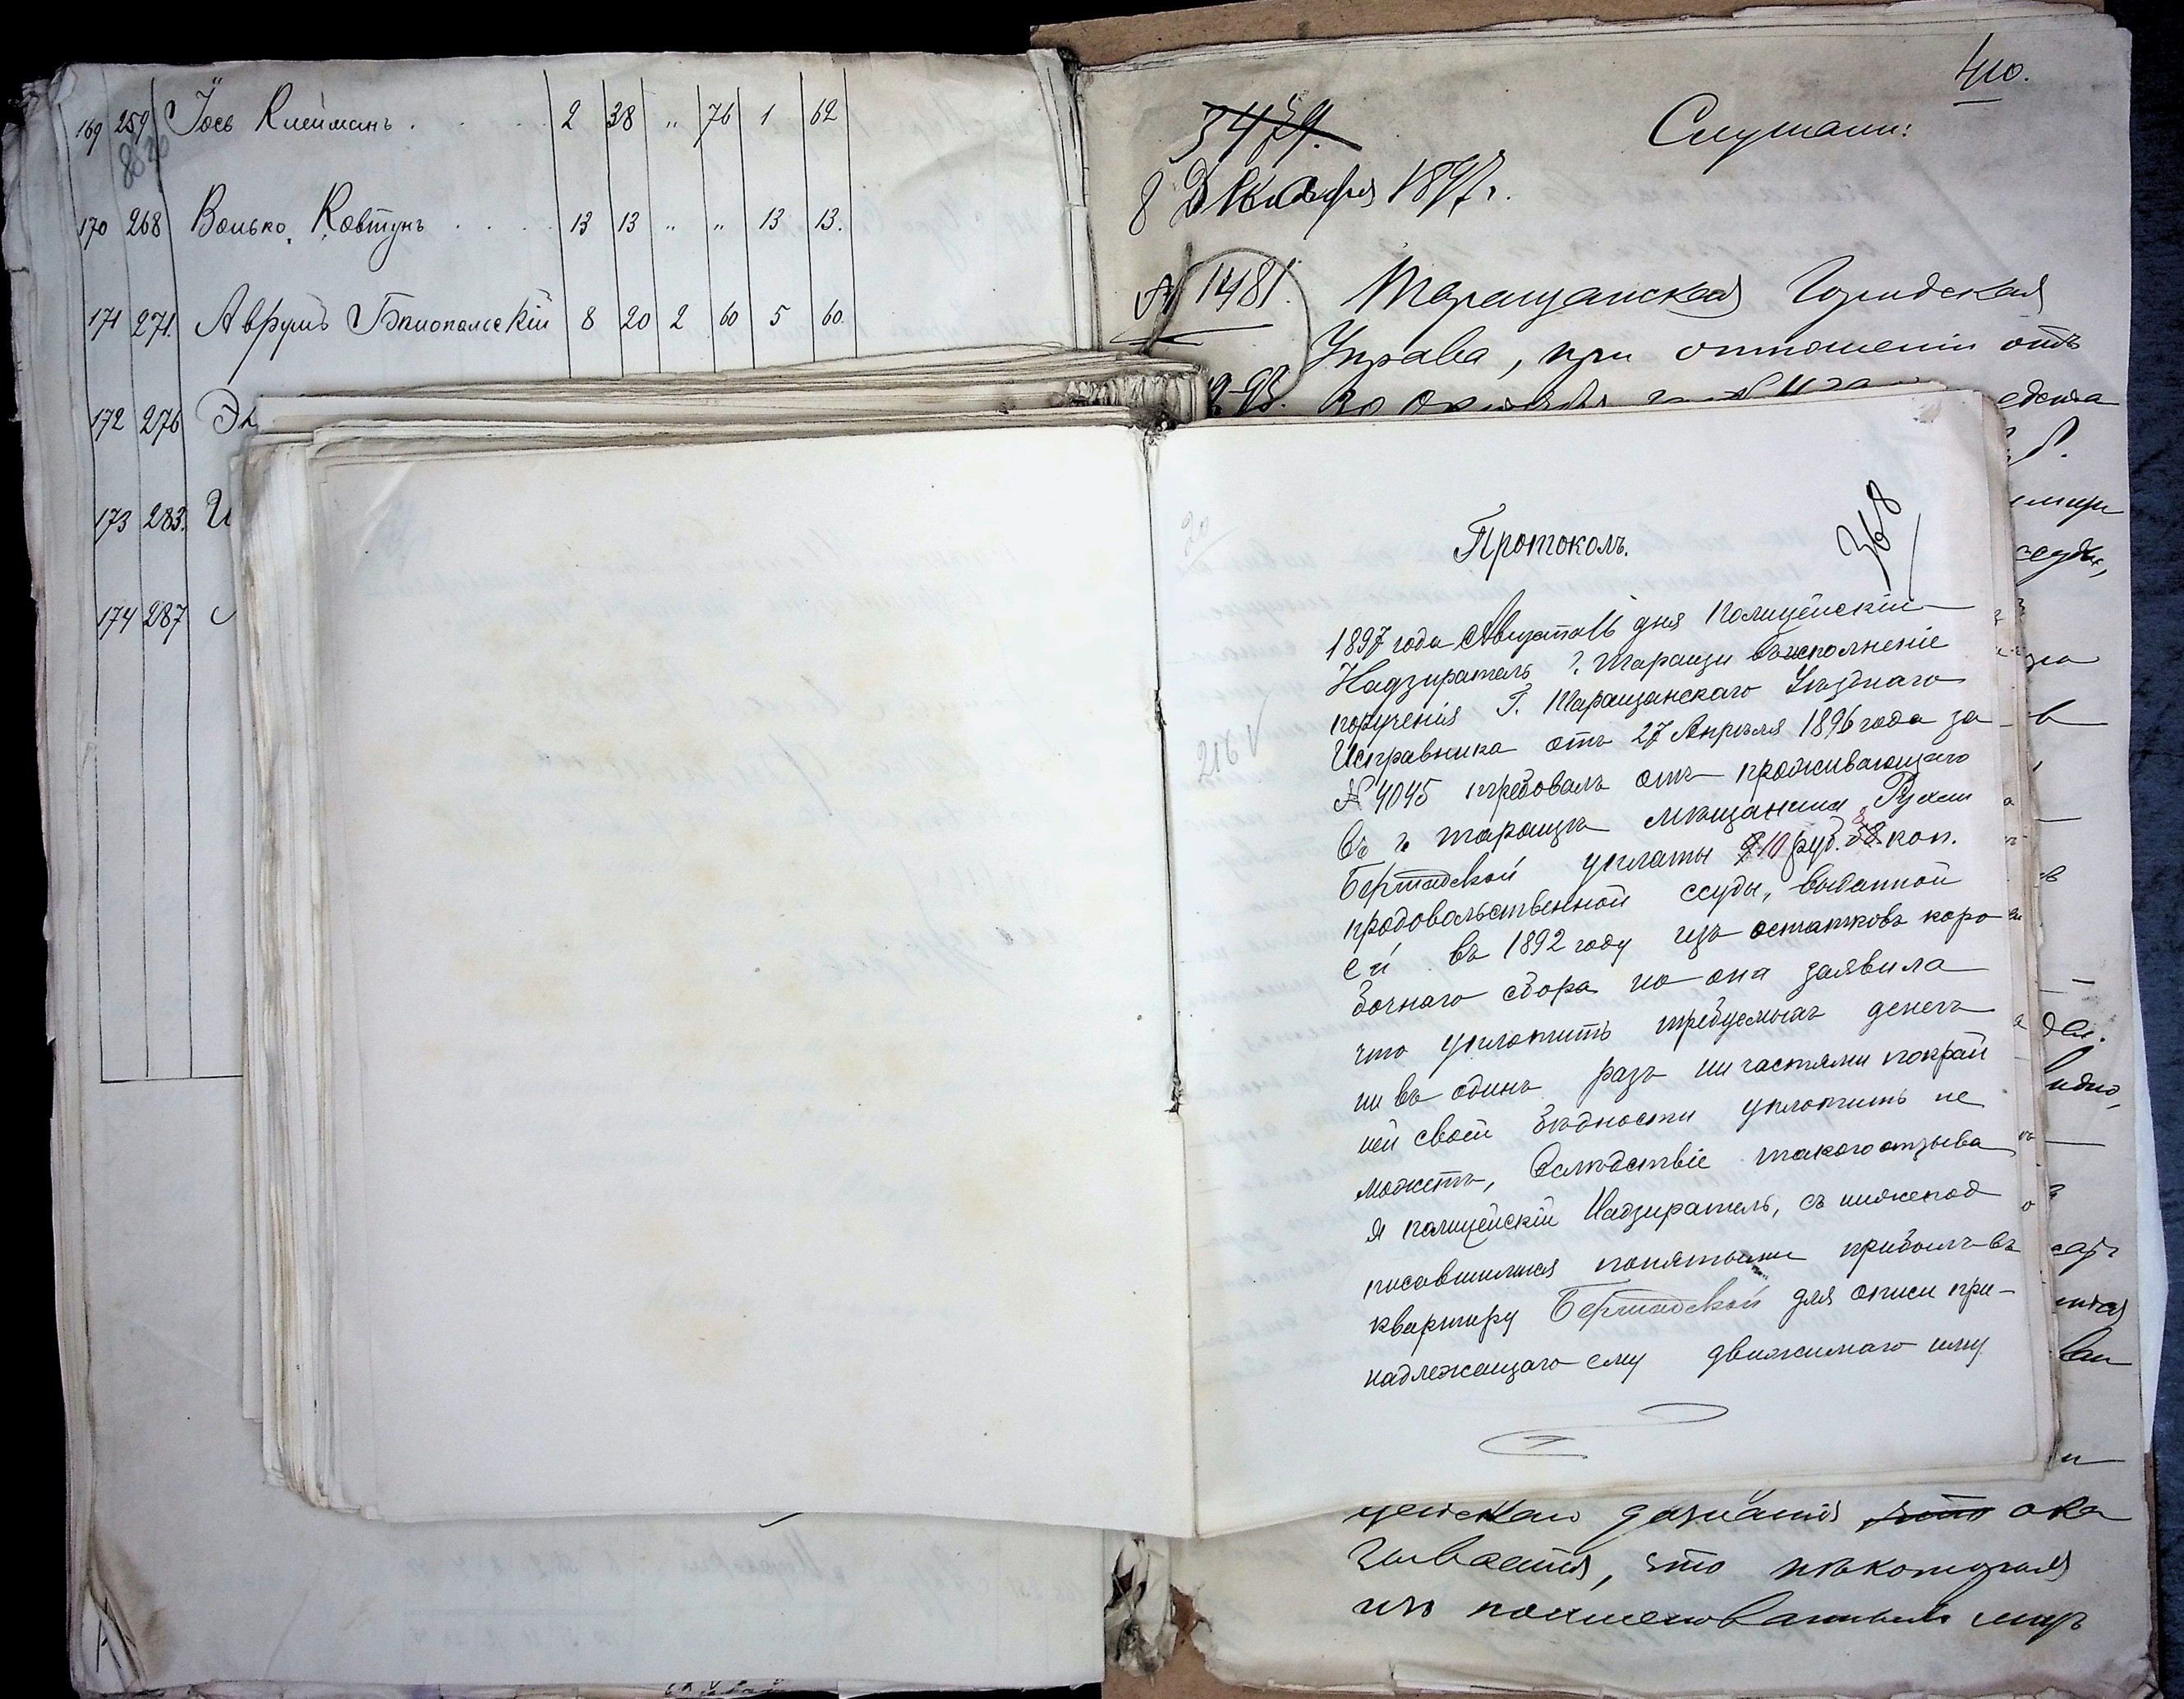 169 259 Іось Клейманъ . . . 2 38 " 76 1 62
170 268 Волько Ковтунъ . . . . 13 13 " " 13 13.
171 271. Аврумъ Бялопольскій 8 20 2 60 5 60.
172 276
173 283.
174 287
410.
3479.
Слушали:
8 Декабря 1897 г.
№ 1481. Таращанская Городская
Управа, при отношеніи отъ
368
Протоколъ.
1897 года Августа 16 дня Полицейскій
Надзиратель г. Таращи во исполненіе
порученія Г. Таращанскаго Уѣзднаго
Исправника отъ 27 Апрѣля 1896 года за
№ 4045 требовалъ отъ проживающаго
въ г. Таращѣ мѣщанина Рухли
Бершадской уплаты 10 руб. коп.
продовольственной ссуды, выданной
ей въ 1892 году изъ остатковъ коро
бочнаго сбора но она заявила
что уплотить требуемыхъ денегъ
ни въ одинъ разъ ни частями покрай
ней своей бѣдности уплотить не
можетъ, Вслѣдствіе такого отзыва
я полицейскій Надзиратель, съ нижепод
писавшимися понятыми прибылъ въ
квартиру Бершадской для описи при-
надлежащаго ему движимаго иму
20
216 V
дознанія что ока
зывается, что нѣкоторыя
изъ поименованныхъ лицъ